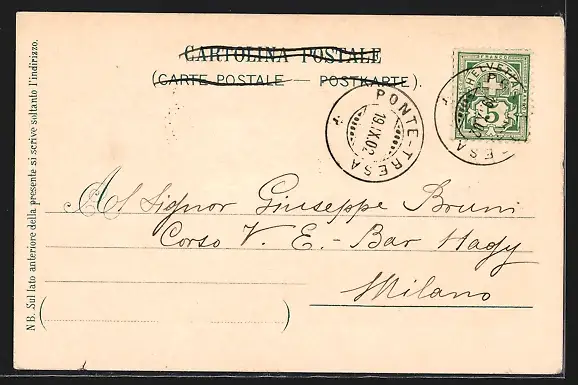 CARTOLINA POSTALE
(CARTE POSTALE — POSTKARTE).
HELVETIA
FRANCO
5
PONTE-TRESA
19.IX.02
TRESA
Al Signor Giuseppe Bruni
Corso V. E. - Bar Hagy
Milano
NB. Sul lato anteriore della presente si scrive soltanto l'indirizzo.